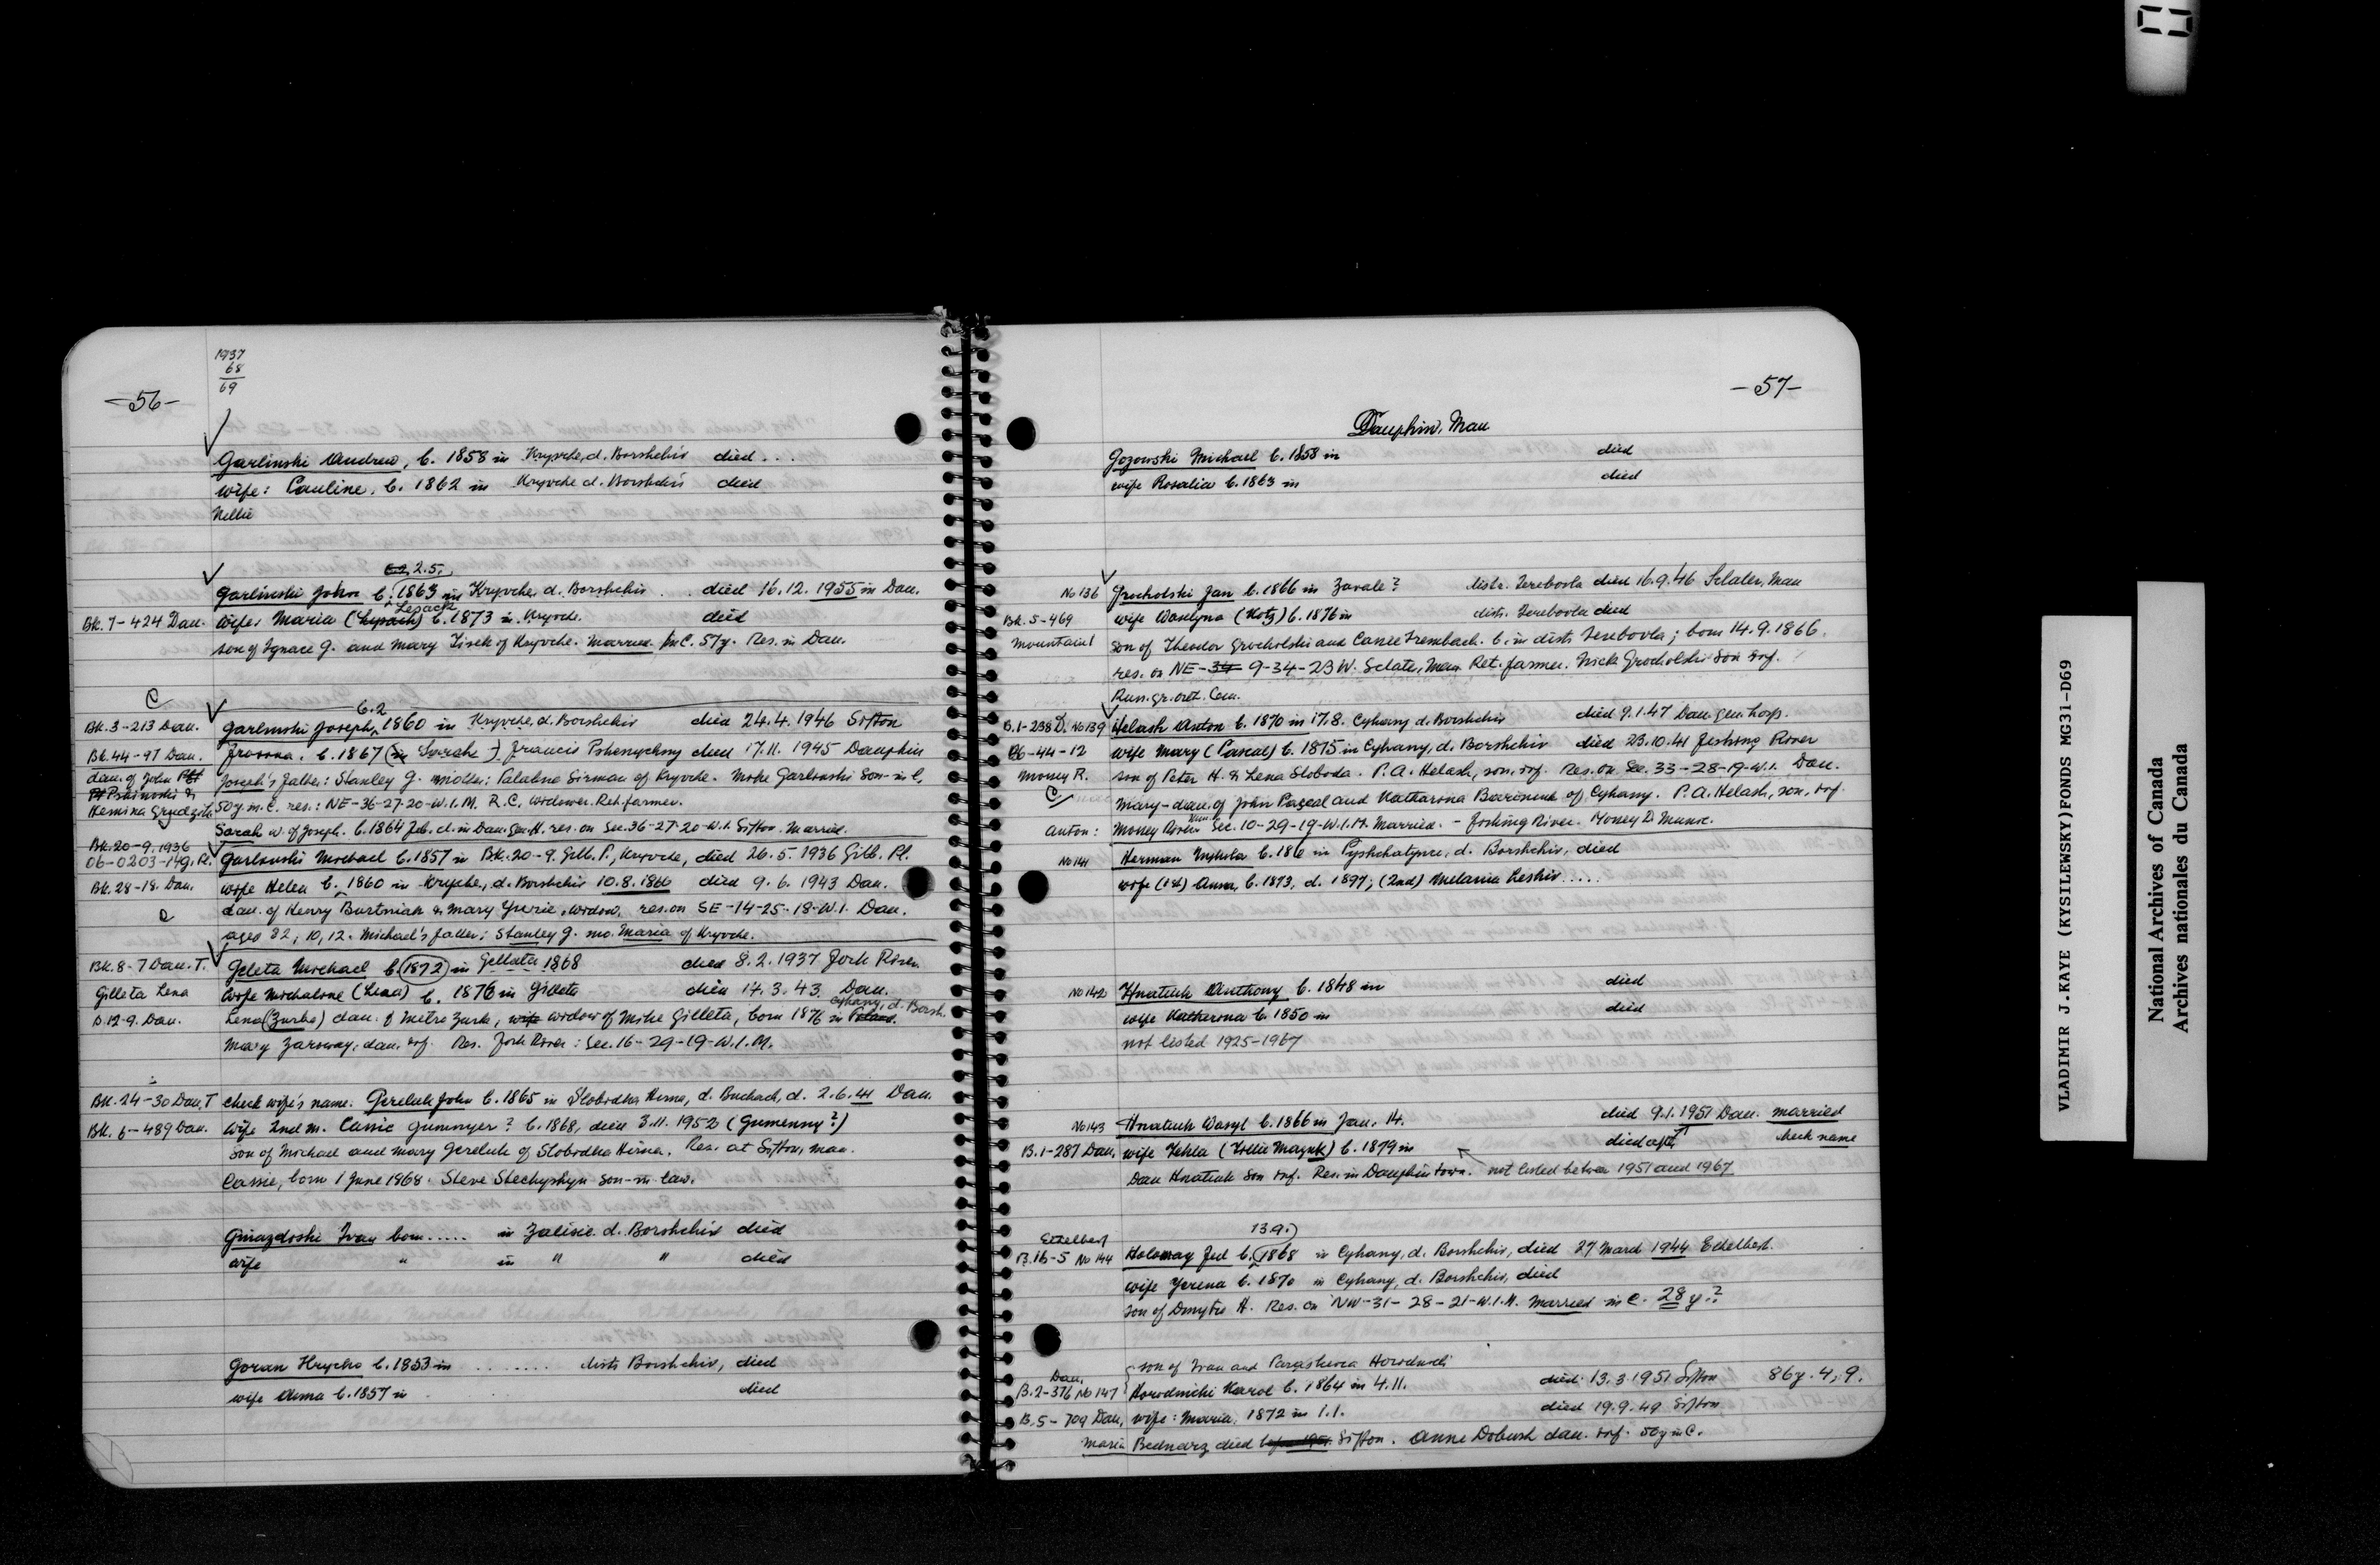 1937
68
69
-56-
Garlinski Andrew, b. 1858 in Kryvche, d. Borshchiv died ...
wife: Pauline, b. 1862 in Kryvche d. Borshchiv died
Nellie
2.5.
Garlinski John b. 1863 in Kryvche, d. Borshchiv . . died 16.12.1955 in Dau.
Lesack
Bk. 7-424 Dau. wife: Maria b. 1873 in Kryvch. died
son of Ignace G. and Mary Tisck of Kryvche. Married. In C. 57y. Res. in Dau.
C
6.2
Bk.3-213 Dau. Garlinski Joseph, 1860 in Kryvche, d. Borshchiv died 24.4.1946 Sifton
Bk.44-97 Dau. b. 1867 (in Sarah -) Francis Pshenychny died 17.11.1945 Dauphin
dau. of John Joseph's father: Stanley G. mother: Palahna Sirman of Kryvche. Mike Garlinski son-in l,
50y. in C. res.: NE-36-27-20-W.1.M. R.C. widower. Ret. farmer.
Sarah w. of Joseph. b. 1864 Feb. d. in Dau. Gen. H. res. on Sec. 36-27-20-W.1. Sifton. Married.
Bk.20-9.1936
06-0203-149. Pl. Garlinski Michael b. 1857 in Bk. 20-9. Gilb. P., Kryvche, died 26.5.1936 Gilb. Pl.
Bk. 28-18. Dau. wife Helen b. 1860 in Kryvche, d. Borshchiv 10.8.1860 died 9.6.1943 Dau.
dau. of Henry Burtniak & Mary Yurie, widow, res. on SE-14-25-18-W.1. Dau.
aged 82, 10, 12. Michael's father: Stanley G. mo. Maria of Kryvche.
Bk. 8-7 Dau. T. Geleta Michael b. 1872 in Gelleta 1868 died 8.2.1937 Fork River
Gilleta Lena wife Michaline (Lena) b. 1876 in Gilleta died 14.3.43 Dau.
Cyhany, d. Borsh.
B.12-9. Dau. Lena (Zurba) dau. of Metro Zurk, widow of Mike Gilleta, born 1876 in
Mary Zaroway, dau. inf. Res. Fork River: Sec. 16-29-19-W.1.M.
Bk. 24-30 Dau, T check wife's name. Gereluk John b. 1865 in Slobidka Hirna, d. Buchach, d. 2.6.41 Dau.
Bk. 6-489 Dau. wife 2nd m. Cassie Gumnyer? b. 1868, died 3.11.1952 (Gumenny?)
son of Michael and Mary Gereluk of Slobodka Hirna. Res. at Sifton, Man.
Cassie, born 1 June 1868. Steve Stechyshyn son-in-law.
Gniazdoski Ivan born..... in Zalisie d. Borshchiv died
wife " in " " died
Goran Hrycko b. 1853 in ........ distr. Borshchiv, died
wife Anna b. 1857 in died
-57-
Dauphin, Man
Gozowski Michael b. 1858 in died
wife Rosalia b. 1863 in died
No 136 Grocholski Jan b. 1866 in Zavale? distr. Terebovla died 16.9.46 Sclater, Man
Bk. 5-469 wife Wasylyna (Kotz) b. 1876 in distr. Terebovla died
Mountain 1 son of Theodor Grocholski and Cassie Trembach. b. in distr. Terebovla; born 14.9.1866.
res. on NE-34 9-34-23 W. Sclater, Man Ret. farmer. Nick Grocholski son inf.
Russ. gr. ort. Cem.
B.1-238 D. No 139 Helash Anton b. 1870 in 17.8. Cyhany d. Borshchiv died 9.1.47 Dau. gen. hosp.
06-44-12 wife Mary (Pascal) b. 1875 in Cyhany, d. Borshchiv died 23.10.41 Fishing River
Mossey R. son of Peter H. & Lena Sloboda. P.A. Helash, son, inf. Res. on Sec. 33-28-19-W.1. Dau.
C Mary - dau. of John Pascal and Katharina of Cyhany. P.A. Helash, son, inf.
Anton: Mossey River Mun. Sec. 10-29-19-W.1.M. Married. - Fishing River.
No 141 Herman Mykola b. 186 in Pyshchatynce, d. Borshchiv, died
wife (1st) Anna, b. 1873, d. 1897, (2nd) Melania Leshiv.....
No 142 Hnatiuk Anthony b. 1848 in died
wife Katherina b. 1850 in died
not listed 1925-1967
No 143 Hnatiuk Wasyl b. 1866 in Jan. 14. died 9.1.1951 Dau. married
B.1-287 Dau. wife Tekla (Tillie Mazuk) b. 1879 in died aft check name
Dan Hnatiuk son inf. Res. in Dauphin town. not listed betwen 1951 and 1967
Ethelbert 13.9.
B.16-5 No 144 Holoway Fed b. 1868 in Cyhany, d. Borshchiv, died 27 March 1944 Ethelbert.
wife Yerena b. 1870 in Cyhany, d. Borshchiv, died
son of Dmytro H. Res. on NW-31-28-21-W.1.M. Married in C. 28 y.?
son of Ivan and Paraskevia Horodnicki
Dau.
B.2-376 No 147 Horodnicki Karol b. 1864 in 4.11. died 13.3.1951 Sifton 86y. 4, 9.
B.5-709 Dau, wife: Maria, 1872 in 1.1. died 19.9.49 Sifton
Maria Bednarz died Sifton. Anne Dobush dau. inf. 50y in C.
VLADIMIR J.KAYE (KYSILEWSKY)FONDS MG31-D69
National Archives of Canada
Archives nationales du Canada